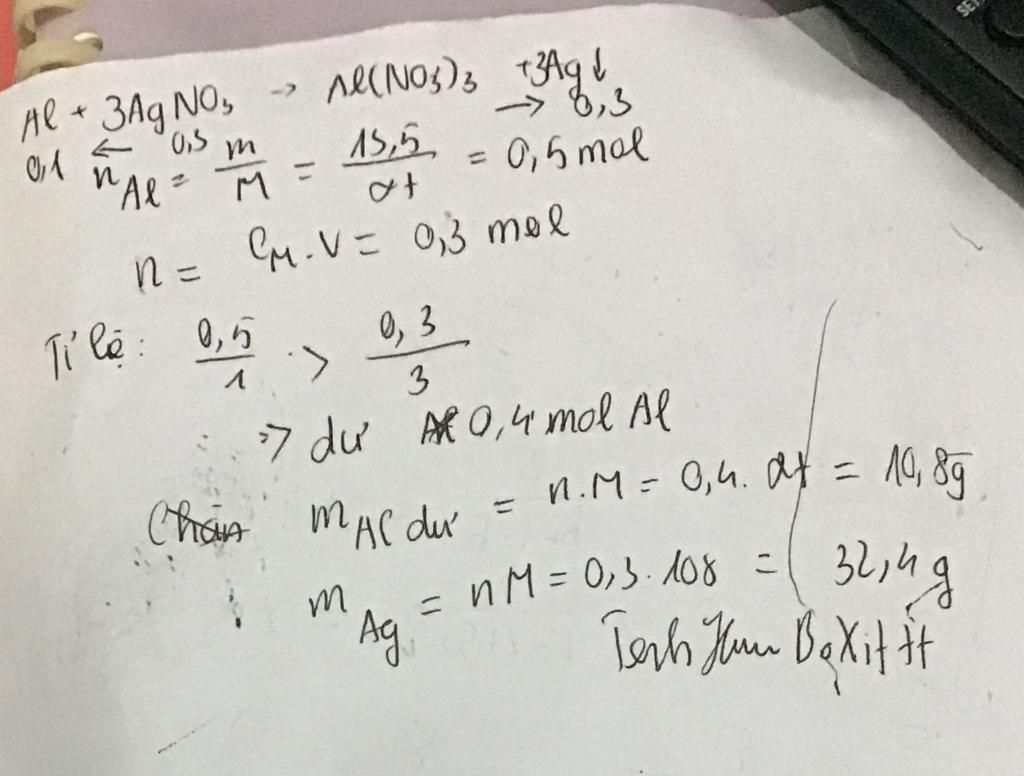 Al + 3AgNO3 → Al(NO3)3 + 3Ag↓
0,1 ← 0,3 → 0,3
nAl = m/M = 13,5/27 = 0,5 mol
n = CM.V = 0,3 mol
Tỉ lệ: 0,5/1 > 0,3/3
=> dư 0,4 mol Al
mAl dư = n.M = 0,4. 27 = 10,8g
mAg = nM = 0,3.108 = 32,4g
BoXit